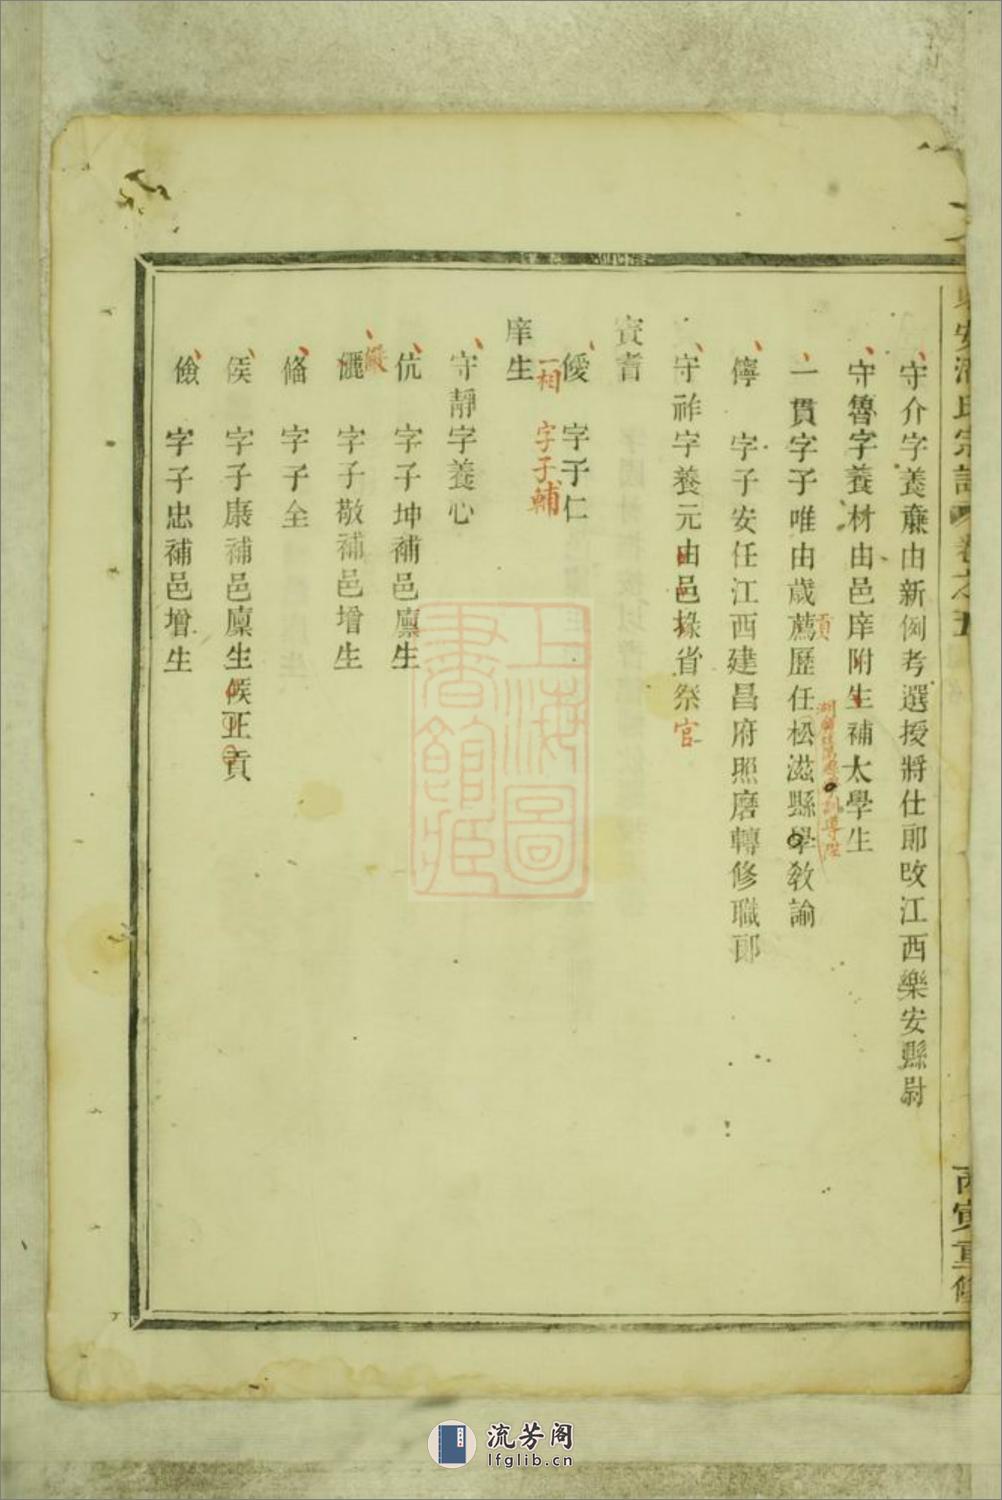 安 氏宗譜 卷之五 丙寅重修
守介字養亷由新例考選授將仕郎改江西樂安縣尉
守魯字養材由邑庠附生補太學生
一貫字子唯由歲薦歷任松滋縣學教諭
貢
訓導陞
儜 字子安任江西建昌府照磨轉修職郎
守祚字養元由邑掾省祭官
賓耆
僾 字子仁
一相 字子輔
庠生
守靜字養心
伉 字子坤補邑廩生
儼
儷 字子敬補邑增生
偹 字子全
俟 字子康補邑廩生候正貢
儉 字子忠補邑增生
上海圖書館藏
流芳阁
lfglib.cn